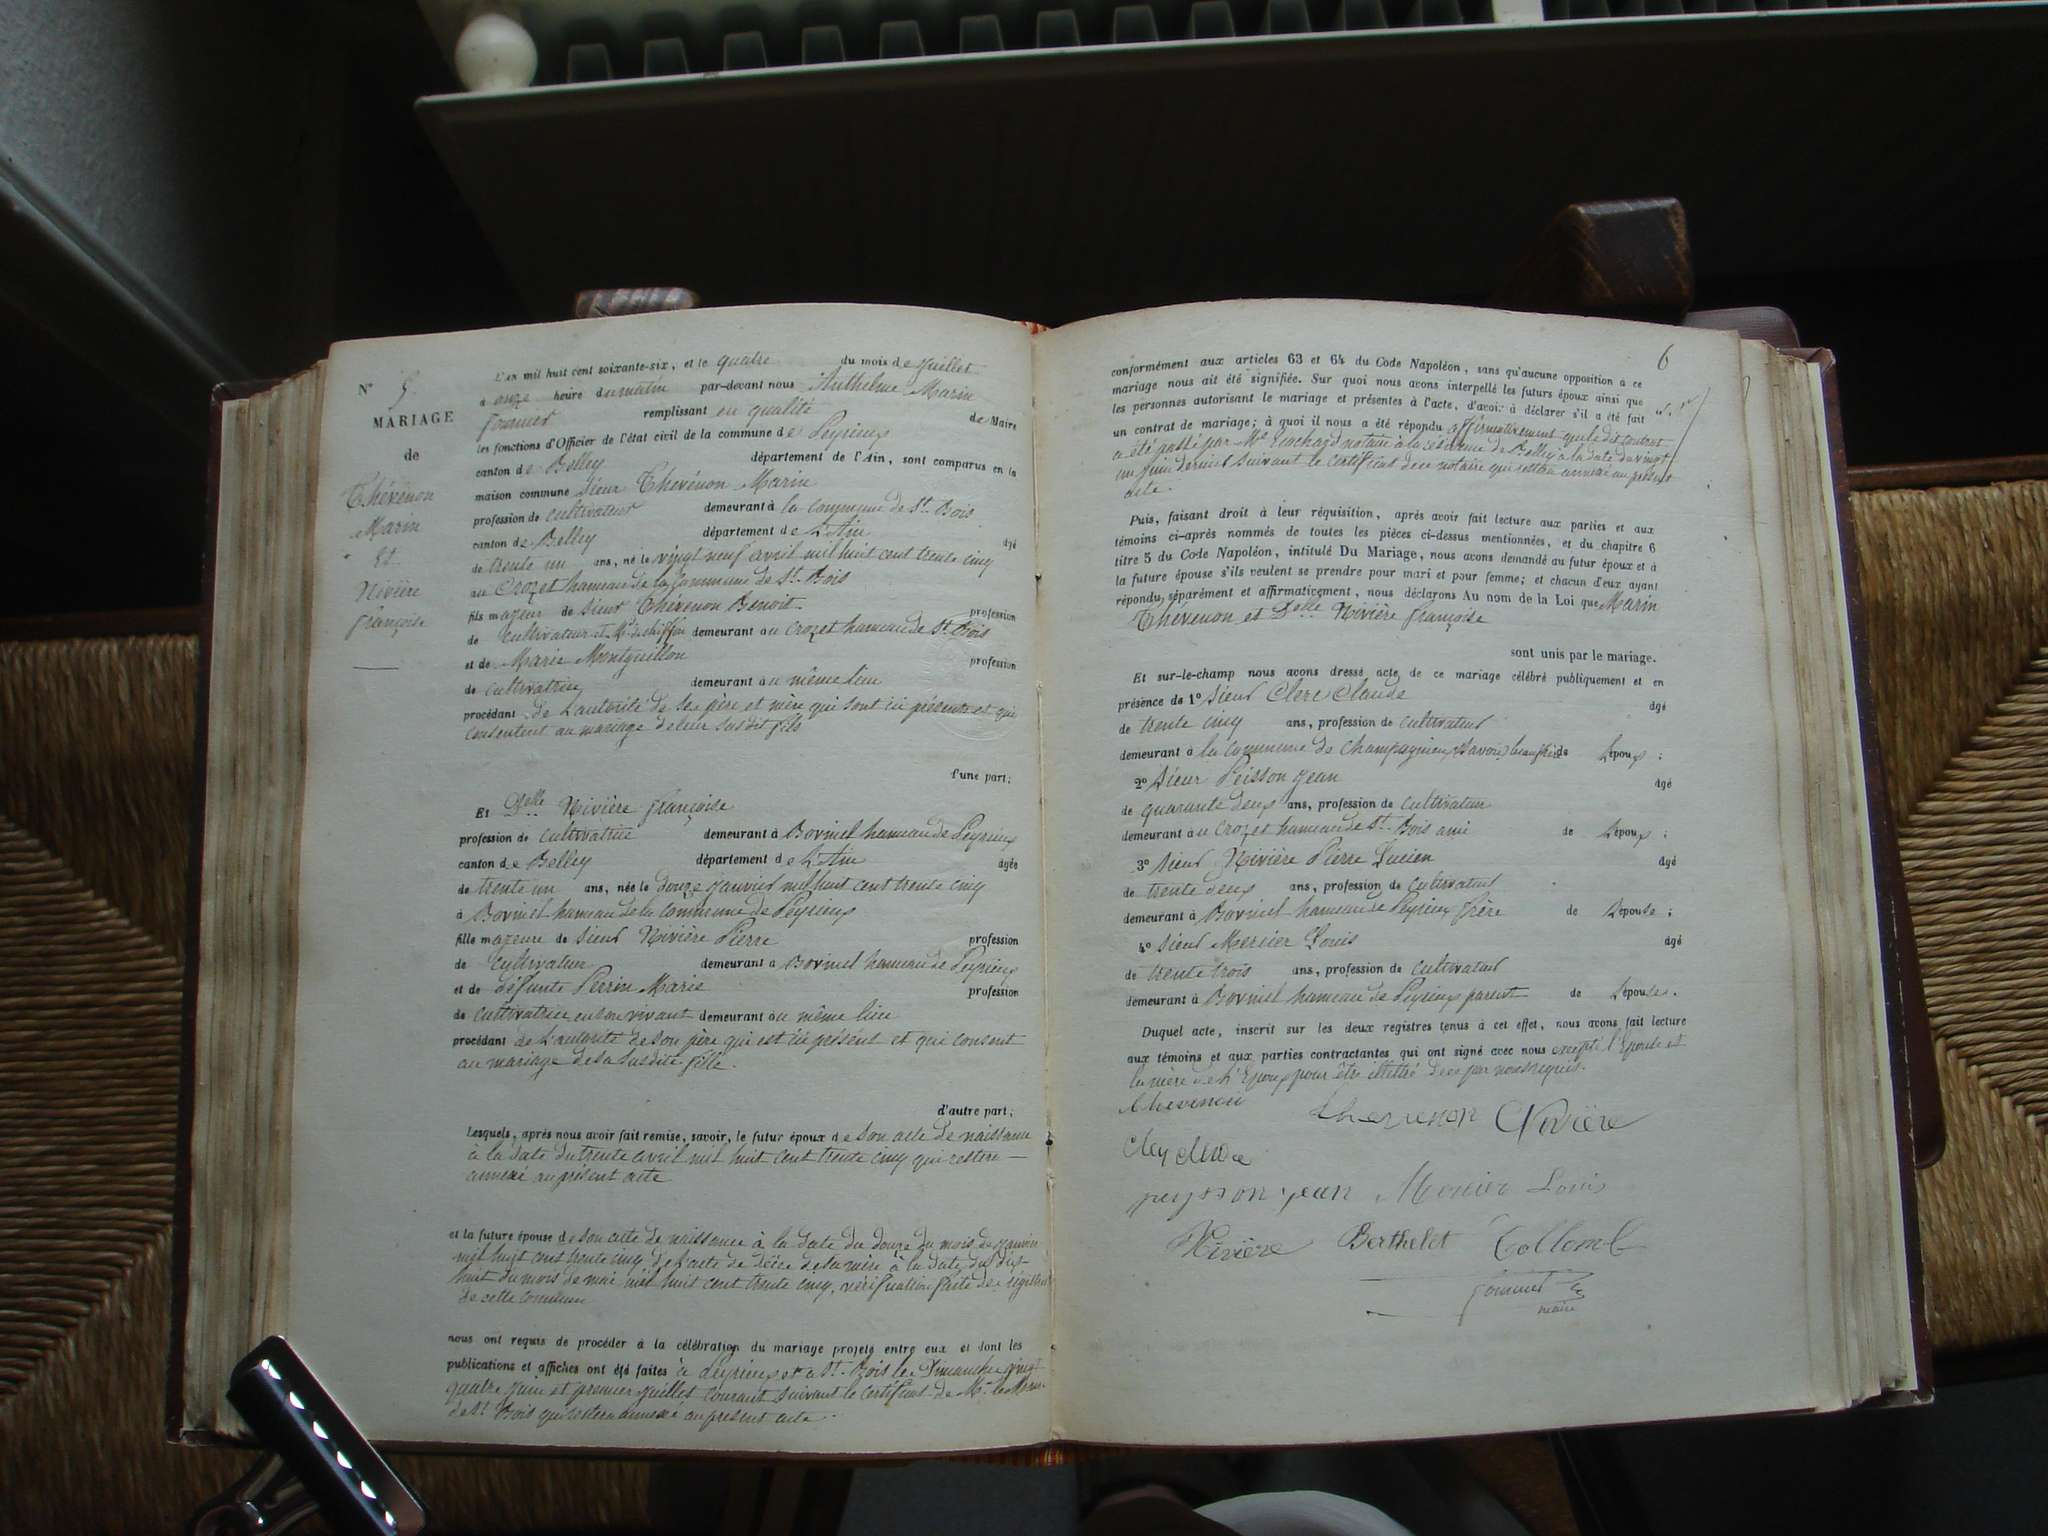 N° 5
MARIAGE
de
Thévenon
Marin
Et
Rivière
françoise
L'an mil huit cent soixante-six, et le quatre du mois de Juillet
à onze heure du matin par-devant nous Anthelme Marin
remplissant en qualité de Maire
les fonctions d'Officier de l'état civil de la commune de Peyrieux
canton de Belley département de l'Ain, sont comparus en la
maison commune Sieur Thévenon Marin
profession de cultivateur demeurant à la commune de St. Bois
canton de Belley département de L'Ain âgé
de trente un ans, né le vingt neuf avril mil huit cent trente cinq
au Crozet hameau de la Commune de St. Bois
fils majeur de Sieur Thévenon Benoit profession
de Cultivateur et Md. de chiffon demeurant au Crozet hameau de St. Bois
et de Marie Montguillon profession
de cultivatrice demeurant au même lieu
procédant de L'autorité de ses père et mère qui sont ici présents et qui
consentent au mariage de leur susdit fils
l'une part;
Et Delle Rivière françoise
profession de cultivatrice demeurant à Bovinel hameau de Peyrieux
canton de Belley département de L'Ain âgée
de trente un ans, née le douze Janvier mil huit cent trente cinq
à Bovinel hameau de la Commune de Peyrieux
fille majeure de Sieur Rivière Pierre profession
de Cultivateur demeurant à Bovinel hameau de Peyrieux
et de défunte Perrin Marie profession
de cultivatrice en son vivant demeurant au même lieu
procédant de L'autorité de son père qui est ici présent et qui consent
au mariage de sa susdite fille.
d'autre part;
Lesquels, après nous avoir fait remise, savoir, le futur époux de son acte de naissance
à la date du trente avril mil huit cent trente cinq qui restera
annexé au présent acte
et la future épouse de son acte de naissance à la date du douze du mois de Janvier
mil huit cent trente cinq, de l'acte de décès de sa mère à la date du dix-
huit du mois de mai mil huit cent trente cinq, vérification faite des régistres
de cette commune
nous ont requis de procéder à la célébration du mariage projeté entre eux et dont les
publications et affiches ont été faites à Peyrieux et à St. Bois les Dimanches vingt
quatre Juin et premier Juillet courant suivant le certificat de Mr. le Maire
de St. Bois qui restera annexé au présent acte.
6
conformément aux articles 63 et 64 du Code Napoléon, sans qu'aucune opposition à ce
mariage nous ait été signifiée. Sur quoi nous avons interpellé les futurs époux ainsi que
les personnes autorisant le mariage et présentes à l'acte, d'avoir à déclarer s'il a été fait
un contrat de mariage; à quoi il nous a été répondu affirmativement que le dit contrat
a été passé par Me notaire à la résidence de Belley à la date du vingt
un Juin dernier suivant le certificat de ce notaire qui restera annexé au présent
acte.
Puis, faisant droit à leur réquisition, après avoir fait lecture aux parties et aux
témoins ci-après nommés de toutes les pièces ci-dessus mentionnées, et du chapitre 6
titre 5 du Code Napoléon, intitulé Du Mariage, nous avons demandé au futur époux et à
la future épouse s'ils veulent se prendre pour mari et pour femme; et chacun d'eux ayant
répondu, séparément et affirmativement, nous déclarons Au nom de la Loi que Marin
Thévenon et Delle Rivière françoise
sont unis par le mariage.
Et sur-le-champ nous avons dressé acte de ce mariage célébré publiquement et en
présence de 1° Sieur Clerc Claude âgé
de trente cinq ans, profession de cultivateur
demeurant à la commune de Champagnieux (Savoie) beau frère de L'époux;
2° Sieur Peisson Jean âgé
de quarante deux ans, profession de cultivateur
demeurant au Crozet hameau de St. Bois ami de L'époux;
3° Sieur Rivière Pierre Lucien âgé
de trente deux ans, profession de cultivateur
demeurant à Bovinel hameau de Peyrieux frère de L'épouse;
4° Sieur Mercier Louis âgé
de trente trois ans, profession de cultivateur
demeurant à Bovinel hameau de Peyrieux parent de L'épouse.
Duquel acte, inscrit sur les deux registres tenus à cet effet, nous avons fait lecture
aux témoins et aux parties contractantes qui ont signé avec nous excepté l'Epouse et
la mère de L'Epoux pour être illettré de ce par nous requis.
thevenon Rivière
peysson jean Mercier Louis
Rivière Berthelet Collomb
maire